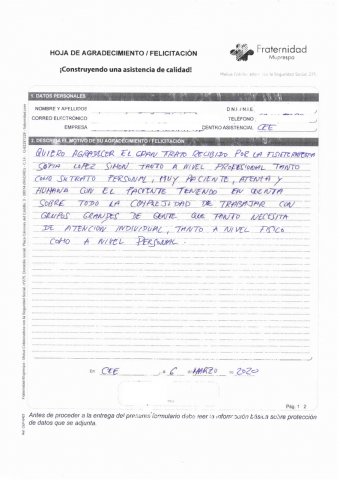 HOJA DE AGRADECIMIENTO / FELICITACIÓN
Fraternidad
Muprespa
¡Construyendo una asistencia de calidad!
1. DATOS PERSONALES
NOMBRE Y APELLIDOS
D.N.I. / N.I.E.
CORREO ELECTRÓNICO
TELÉFONO
EMPRESA
CENTRO ASISTENCIAL CEE
2. DESCRIBA EL MOTIVO DE SU AGRADECIMIENTO / FELICITACIÓN
QUIERO AGRADECER EL GRAN TRATO RECIBIDO POR LA FISIOTERAPEUTA
LOPEZ SIMON, TANTO A NIVEL PROFESIONAL TANTO
COMO SU TRATO PERSONAL, MUY PACIENTE, ATENTA Y
HUMANA CON EL PACIENTE TENIENDO EN CUENTA
SOBRE TODO LA COMPLEJIDAD DE TRABAJAR CON
GRUPOS GRANDES DE GENTE QUE TANTO NECESITA
DE ATENCION INDIVIDUAL, TANTO A NIVEL FISICO
COMO A NIVEL PERSONAL.
En CEE, a 6 de MARZO de 2020
Pág. 1 2
Antes de proceder a la entrega del presente formulario debe leer la información básica sobre protección
de datos que se adjunta.